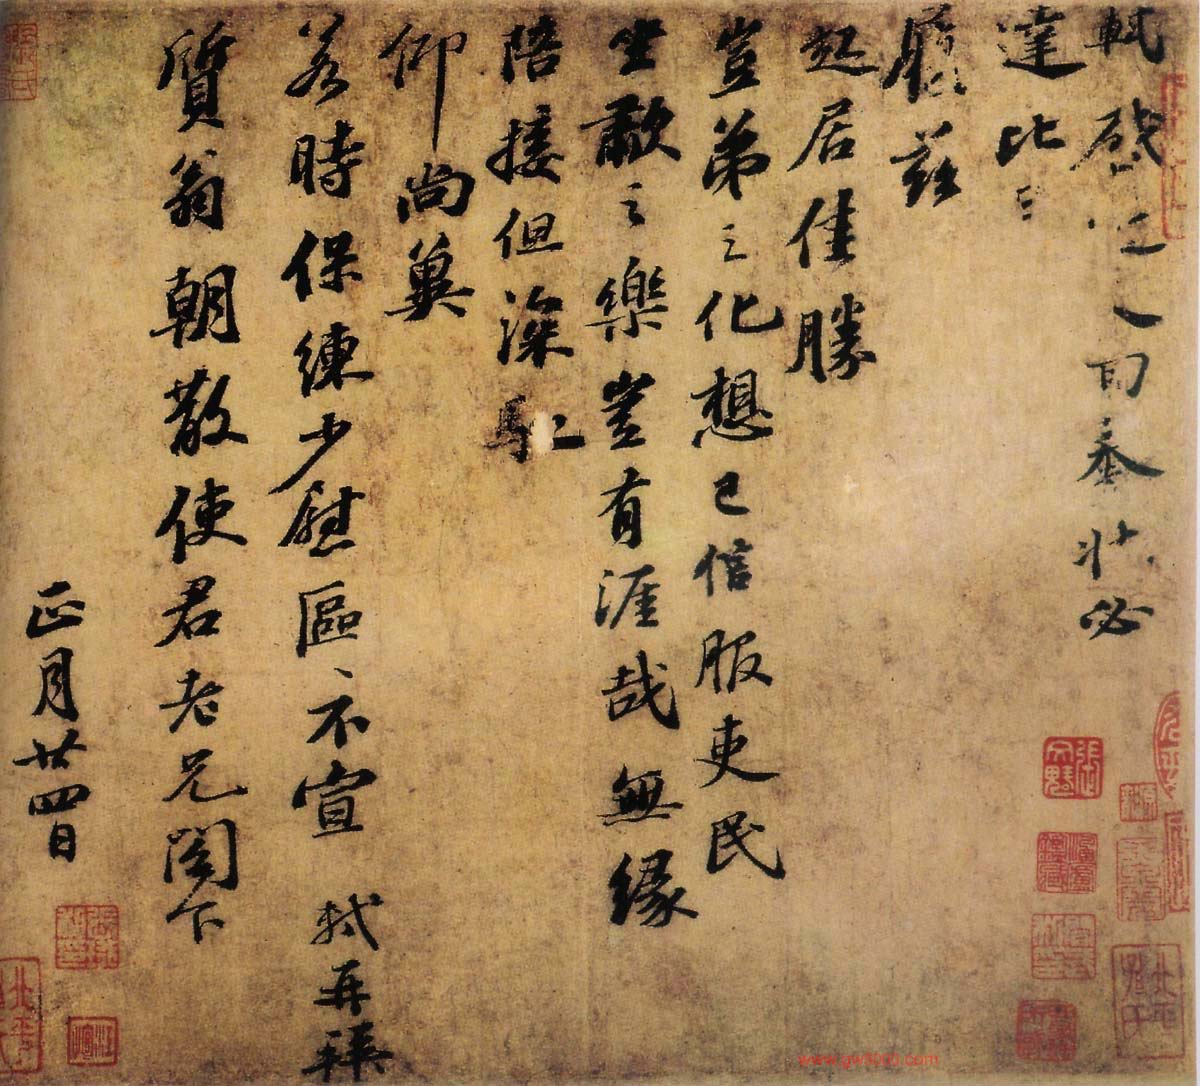 軾啟近人回奉狀必
達比〻
履茲
起居佳勝
豈弟之化想已信服吏民
坐歗之樂豈有涯哉無緣
陪接但深馳
仰尚冀
若時保練少慰區〻不宣 軾再拜
質翁朝散使君老兄閣下
正月廿四日